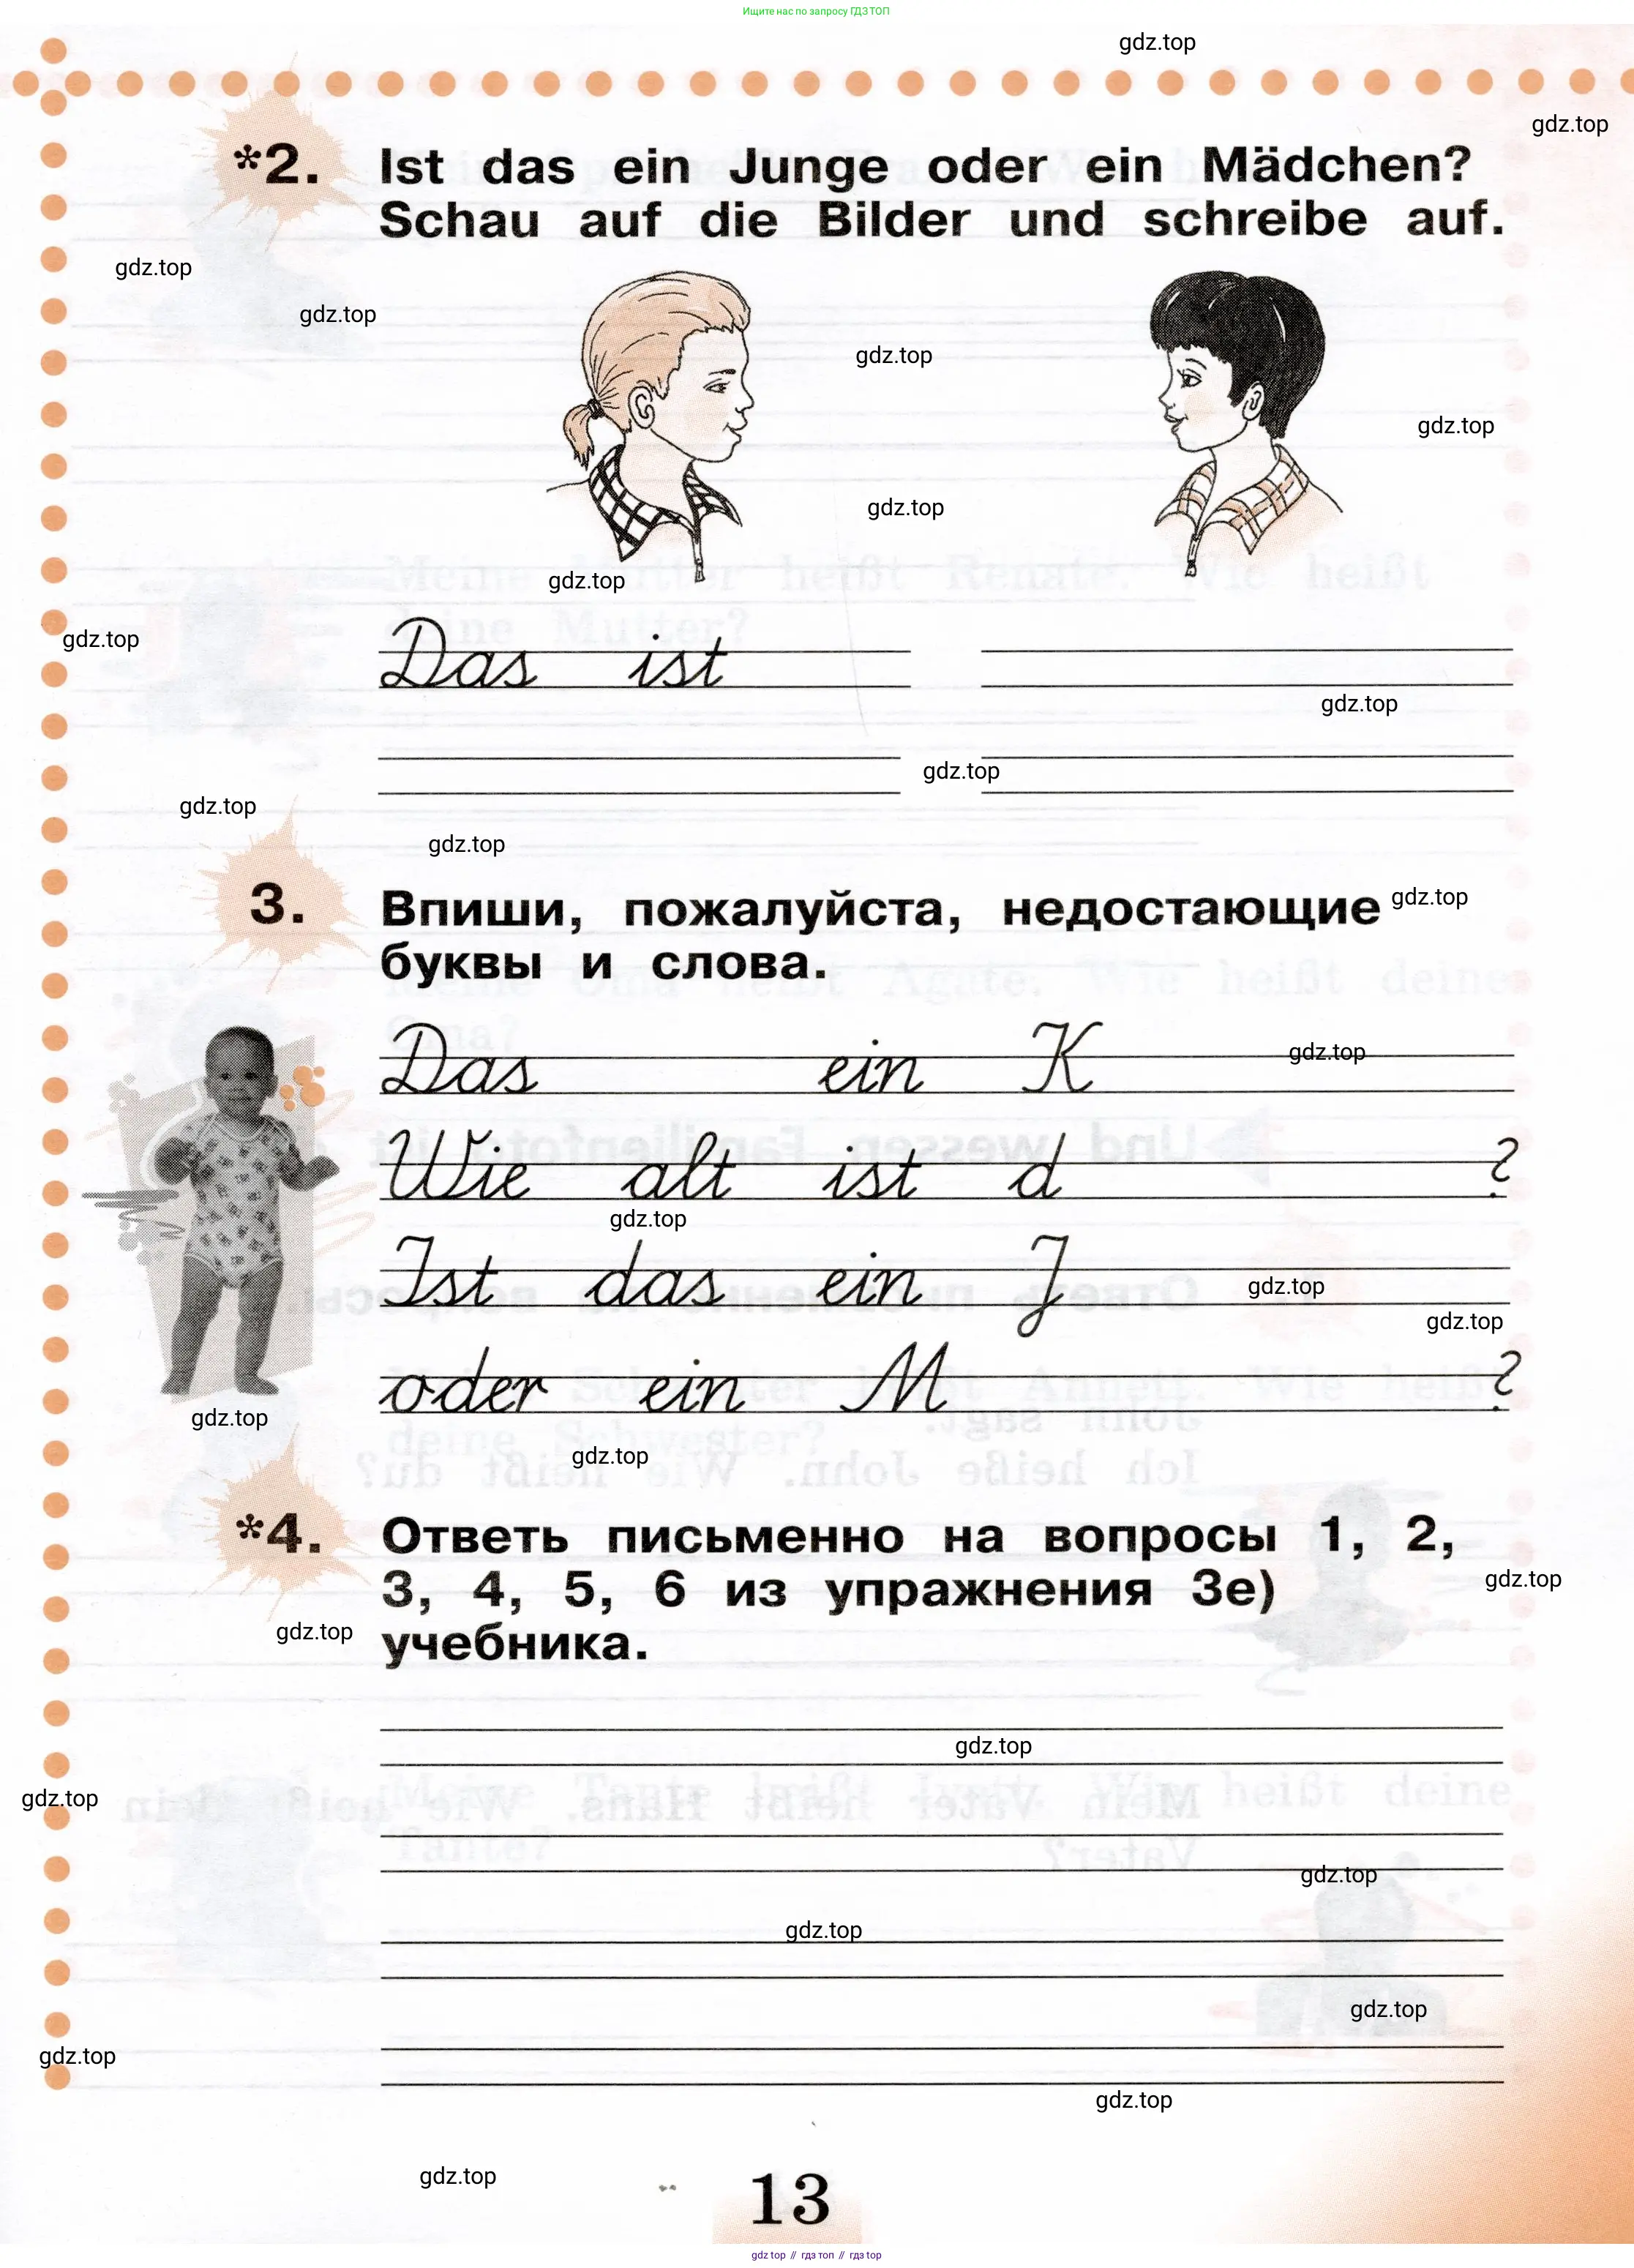 Ищите нас по запросу ГДЗ ТОП
gdz.top
gdz.top
*2. Ist das ein Junge oder ein Mädchen?
Schau auf die Bilder und schreibe auf.
gdz.top
gdz.top
gdz.top
gdz.top
gdz.top
gdz.top
gdz.top
Das ist
gdz.top
gdz.top
gdz.top
gdz.top
3. Впиши, пожалуйста, недостающие gdz.top
буквы и слова.
Das ein K gdz.top
Wie alt ist d ?
gdz.top
Ist das ein J gdz.top
gdz.top
oder ein M ?
gdz.top
gdz.top
*4. Ответь письменно на вопросы 1, 2,
3, 4, 5, 6 из упражнения 3е) gdz.top
gdz.top учебника.
gdz.top
gdz.top
gdz.top
gdz.top
gdz.top
gdz.top
gdz.top
gdz.top
13
gdz top // гдз топ // гдз top